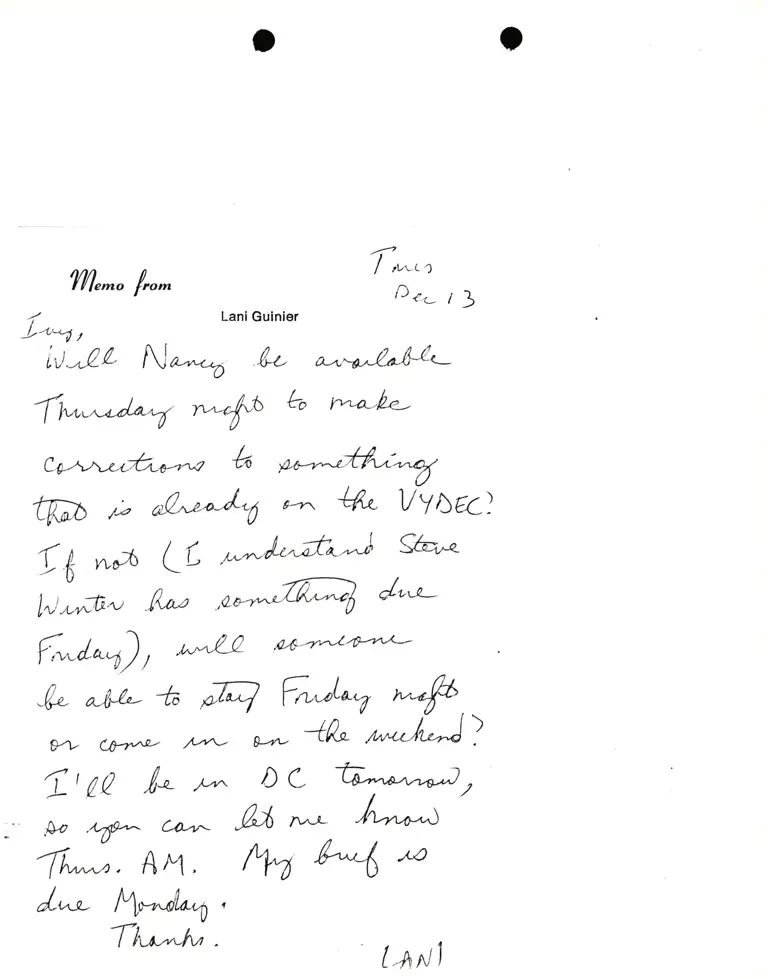 Tues
Dec 13
Memo from
Lani Guinier
Ivy,
Will Nancy be available
Thursday night to make
corrections to something
that is already on the VYDEC?
If not (I understand Steve
Winter has something due
Friday), will someone
be able to stay Friday night
or come in on the weekend?
I'll be in DC tomorrow,
so you can let me know
Thurs. AM. My brief is
due Monday.
Thanks.
LANI